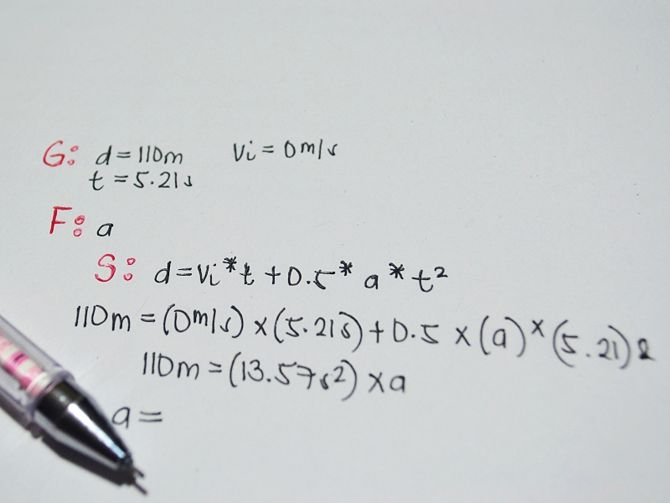 G: d=110m Vi=0m/s
t=5.21s
F: a
S: d=Vi*t+0.5*a*t²
110m=(0m/s)×(5.21s)+0.5×(a)×(5.21)2
110m=(13.57s²)×a
a=